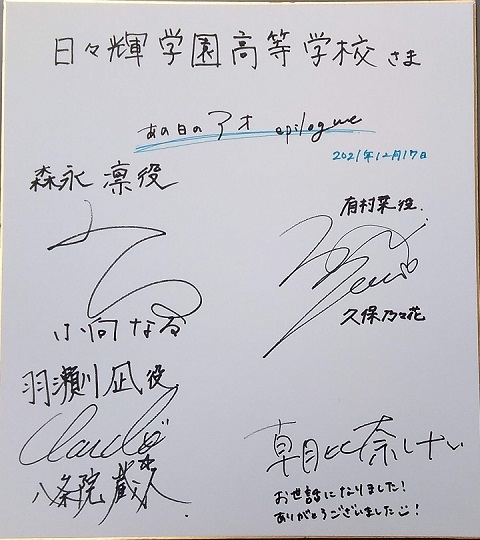 日々輝学園高等学校 さま
あの日のアオ epilogue
2021年12月17日
森永 凛役
小向なる
有村菜役.
久保乃々花
羽瀬川凪役
八条院蔵人
朝比奈
お世話になりました!
ありがとうございました!